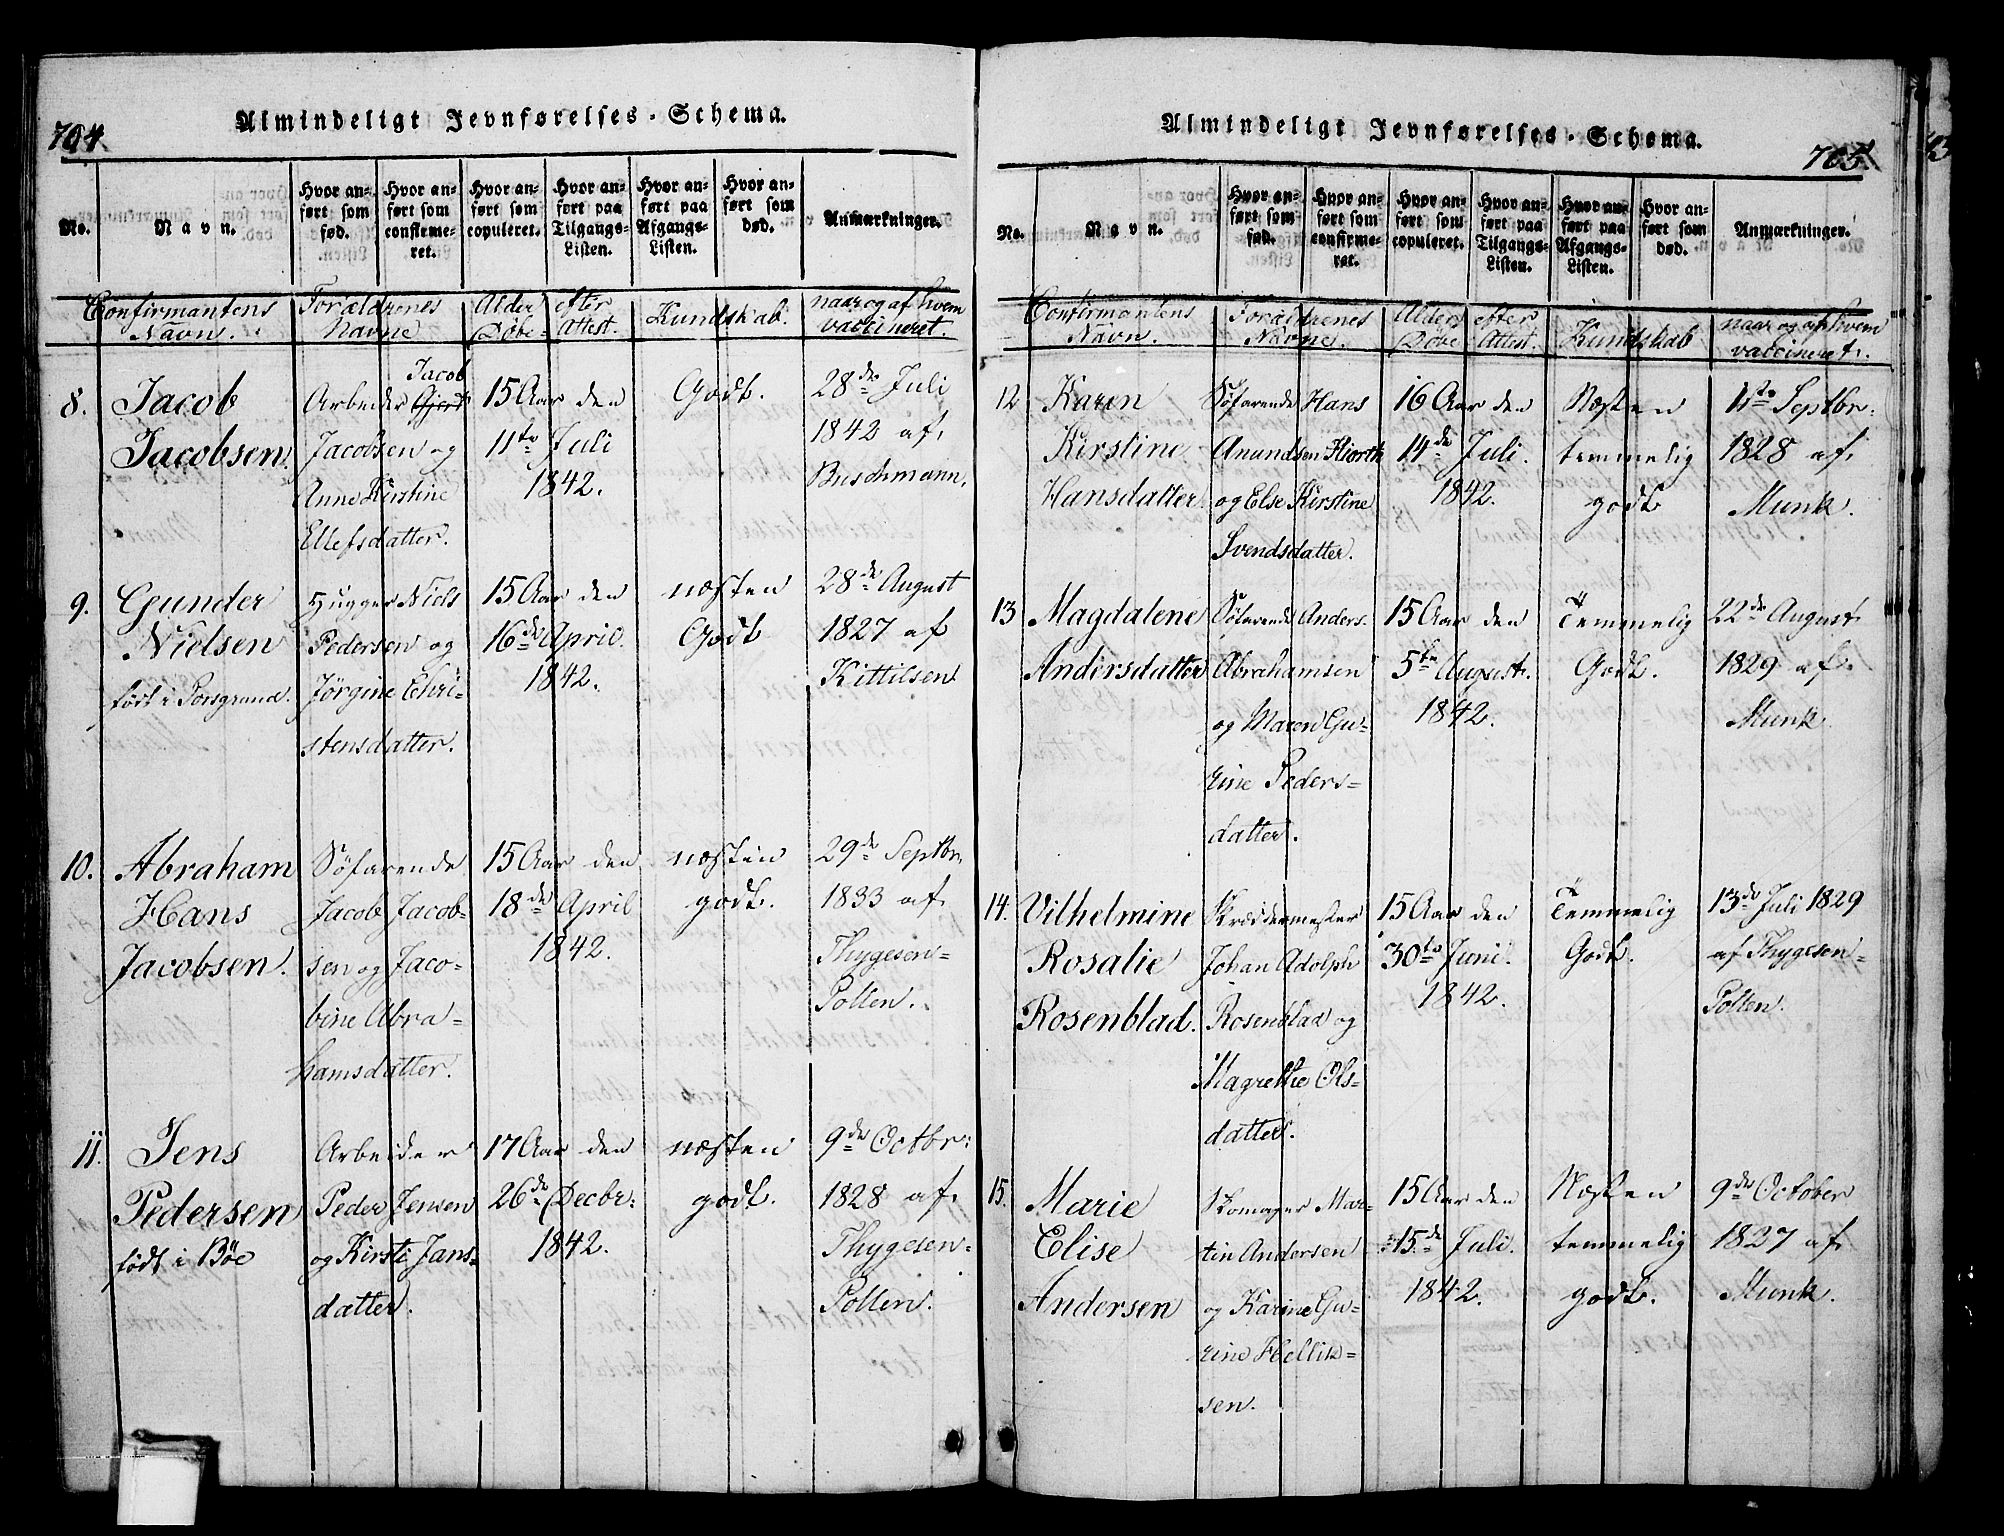 704.
Almindeligt Jevnførelses-Schema.
No.
Navn.
Hvor anført som fød.
Hvor anført som confirmeret.
Hvor anført som copuleret.
Hvor anført paa Tilgangs-Listen.
Hvor anført paa Afgangs-Listen.
Hvor anført som død.
Anmærkninger.
Confirmantens Navn.
Forældrenes Navne
Alder efter Døbe-Attest.
Kundskab.
naar og af hvem vaccineret.
8.
Jacob
Jacobsen.
Jacob
Arbeider Gjert
Jacobsen og
Anne Kirstine
Ellefsdatter.
15 Aar den
11te Juli
1842.
Godt.
28de Juli
1842 af
Buschmann.
9.
Gunder
Nielsen
født i Porsgrund.
Hugger Niels
Pedersen og
Jørgine Chri-
stensdatter.
15 Aar den
16de April.
1842.
næsten
Godt
28de August
1827 af
Kittilsen
10.
Abraham
Hans
Jacobsen.
Søfarende
Jacob Jacob-
sen og Jaco-
bine Abra-
hamsdatter.
15 Aar den
18de April
1842.
næsten
godt.
29de Septbr.
1833 af
Thygesen-
Polten.
11.
Jens
Pedersen
født i Bøe
Arbeider
Peder Jensen
og Kirsti Jans-
datter.
17 Aar den
26de Decbr:
1842.
næsten
godt.
9de Octbr:
1828 af
Thygesen-
Polten.
705.
Almindeligt Jevnførelses-Schema.
No.
Navn.
Hvor anført som fød.
Hvor anført som confirmeret.
Hvor anført som copuleret.
Hvor anført paa Tilgangs-Listen.
Hvor anført paa Afgangs-Listen.
Hvor anført som død.
Anmærkninger.
Confirmantens Navn.
Forældrenes Navne.
Alder efter Døbe Attest.
Kundskab
naar og af hvem vaccineret.
12
Karen
Kirstine
Hansdatter.
Søfarende Hans
Anundsen Hiorth
og Else Kirstine
Svendsdatter.
16 Aar den
14de Juli.
1842.
Næsten
temmelig
godt
11te Septbr:
1828 af
Munk.
13
Magdalene
Andersdatter
Søfarende Anders
Abrahamsen
og Maren Gu-
rine Peders-
datter.
15 Aar den
5te August.
1842.
Temmelig
Godt.
22de August
1829 af
Munk
14.
Vilhelmine
Rosalie
Rosenblad.
Skræddermester
Johan Adolph
Rosenblad og
Magrethe Ols-
datter.
15 Aar den
30te Juni.
1842.
Temmelig
Godt.
13de Juli 1829
af Thygesen-
Polten.
15.
Marie
Elise
Andersen
Skomager Mar-
tin Andersen
og Karine Gu-
rine Hellik-
sen.
15 Aar den
15de Juli.
1842.
Næsten
temmelig
godt.
9de October
1827 af
Munk.